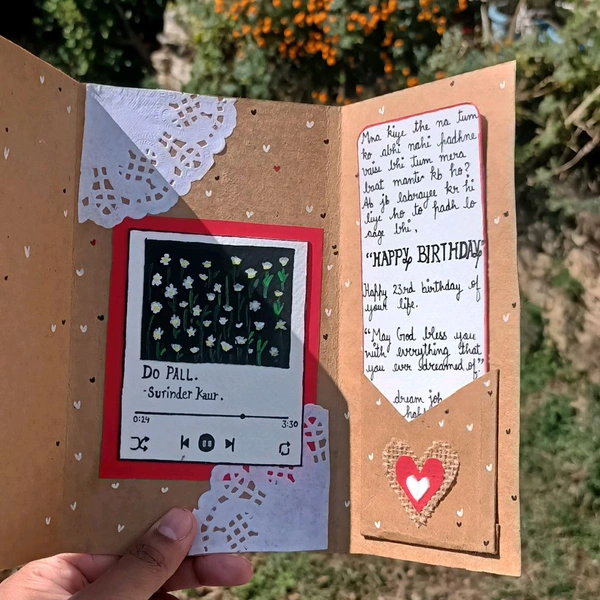 Do Pall.
-Surinder Kaur.
0:24
3:30
Mna kiye the na tum
ko abhi nahi padhne
vaise bhi tum mera
baat mante kb ho?
Ab jb labrayee kr hi
liye ho to padh lo
aage bhi,
"HAPPY BIRTHDAY"
Happy 23rd birthday of
your life.
"May God bless you
with everything that
you ever dreamed of"
dream job